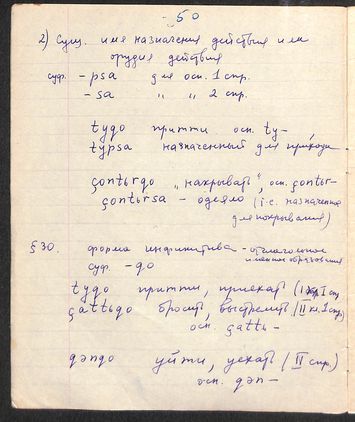 - 50
2) Сущ. имя назначения действия или
орудия действия
суф. - psa для осн. 1 спр.
- sa " " 2 спр.
tydo притти осн. ty-
typsa назначенный для прихода
çontərdo "накрывать", осн. çontər-
çontərsa - одеяло (i.e. назначение
для покрывания)
§ 30. форма инфинитива - отглагольное
именное образование
суф. - do
tydo притти, приехать (I спр.
çattədo бросить, выстрелить (II кл. 1 спр.
осн. çattə-
dəndo уйти, уехать (II спр.)
осн. dən-